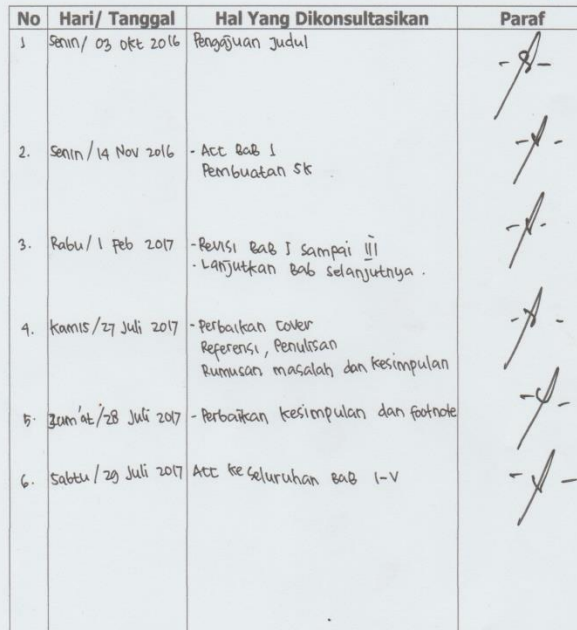 No Hari/ Tanggal Hal Yang Dikonsultasikan Paraf
1 Senin/ 03 okt 2016 Pengajuan Judul
2. Senin/14 Nov 2016 - Acc BAB I
Pembuatan SK
3. Rabu/1 Feb 2017 - Revisi BAB I sampai III
- Lanjutkan Bab selanjutnya.
4. Kamis/27 Juli 2017 - Perbaikan cover
Referensi, Penulisan
Rumusan masalah dan kesimpulan
5. Jum'at/28 Juli 2017 - Perbaikan kesimpulan dan footnote
6. Sabtu/29 Juli 2017 Acc keseluruhan BAB I-V